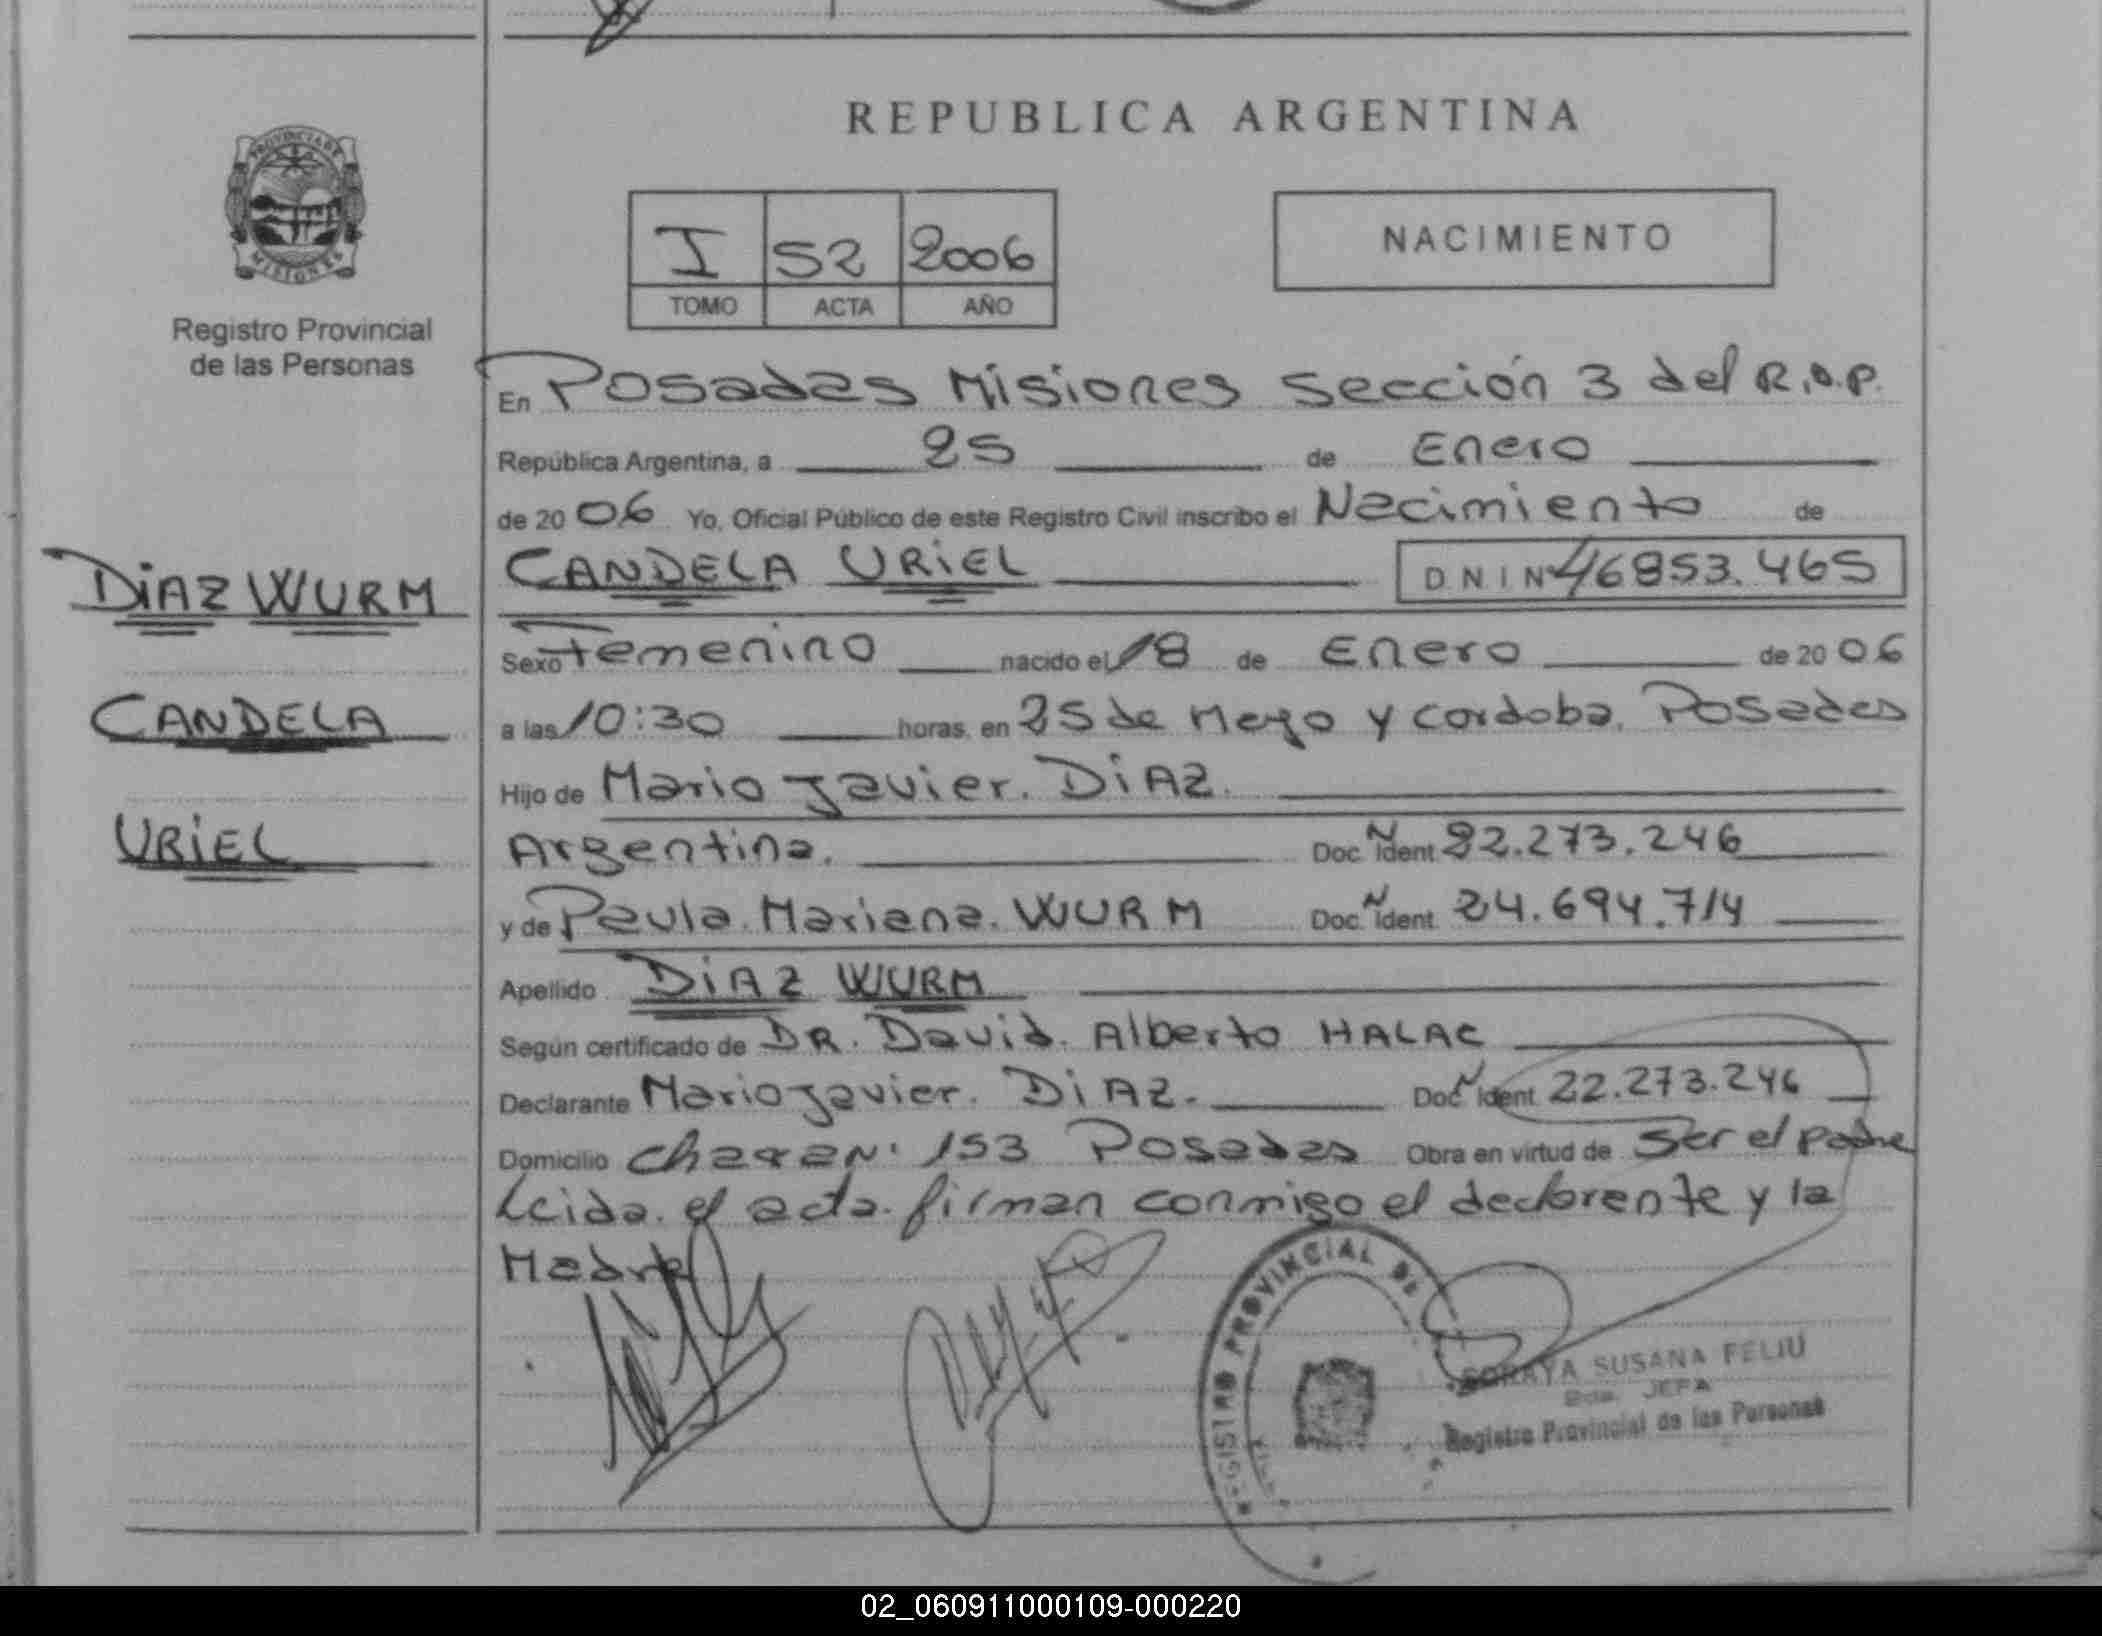 REPUBLICA ARGENTINA
PROVINCIA DE
MISIONES
Registro Provincial
de las Personas
I 52 2006
TOMO ACTA AÑO
NACIMIENTO
En Posadas Misiones Sección 3 del R.D.P.
República Argentina, a 25 de Enero
de 20 06 Yo, Oficial Público de este Registro Civil inscribo el Nacimiento de
DiAZ WURM
CANDELA
URiEL
CANDELA URiEL D.N.I. Nº 46853.465
Sexo Femenino nacido el 18 de Enero de 20 06
a las 10:30 horas, en 25 de Mayo y cordoba. Posadas
Hijo de Mario Javier. DiAZ.
Argentina. Doc. N Ident. 22.273.246
y de Paula. Mariana. WURM Doc. N Ident. 24.694.714
Apellido DiAZ WURM
Según certificado de DR. David. Alberto HALAC
Declarante Mario Javier. DiAZ. Doc N Ident 22.273.246
Domicilio 153 Posadas Obra en virtud de Ser el padre
Leida el acta. firman conmigo el declarante y la
Madre
REGISTRO PROVINCIAL DE
SORAYA SUSANA FELIU
JEFA
Registro Provincial de las Personas
02_060911000109-000220